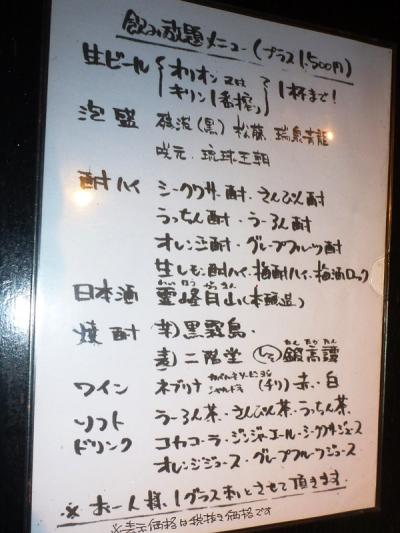 飲み放題メニュー(プラス1,500円)
生ビール{オリオン 又は
キリン1番搾り}1杯まで!
泡盛 残波(黒) 松藤 瑞泉青龍
咲元・琉球王朝
酎ハイ シークワサー酎・さんぴん酎
うっちん酎・うーろん酎
オレンジ酎・グレープフルーツ酎
生レモン酎ハイ・梅酎ハイ・梅酒ロック
日本酒 霊峰月山(本醸造)
焼酎 芋)黒霧島・
麦)二階堂 (しそ)鍛高譚
たんたかたん
ワイン ネブリナ カベルネソービニヨン
シャルドネ (チリ)赤・白
ソフト うーろん茶・さんぴん茶・うっちん茶
ドリンク コカコーラ・ジンジャーエール・シークワサージュース
オレンジジュース・グレープフルーツジュース
※お一人様、1グラス制とさせて頂きます。
※表示価格は税抜き価格です